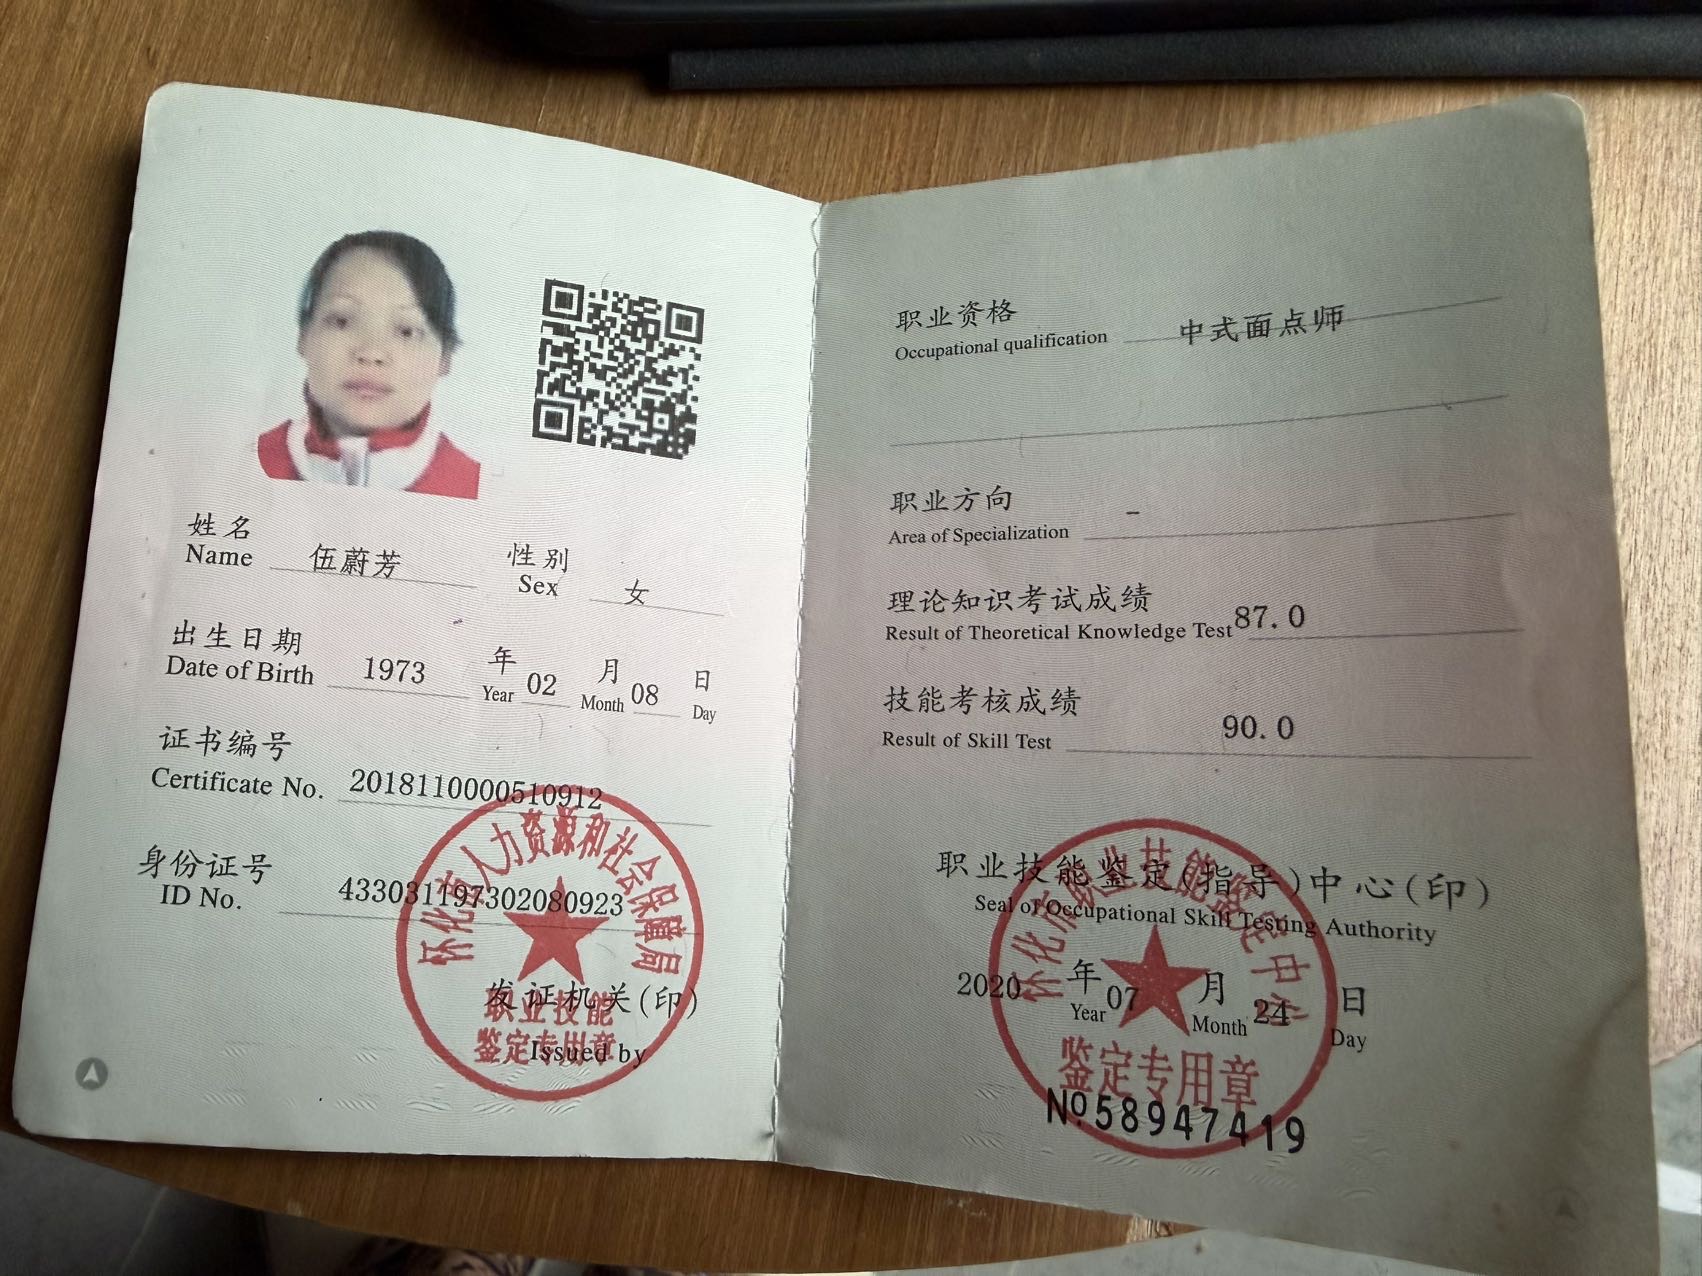 姓名
Name 伍蔚芳
性别
Sex 女
出生日期
Date of Birth 1973 年 Year 02 月 Month 08 日 Day
证书编号
Certificate No. 2018110000510912
身份证号
ID No. 433031197302080923
发证机关(印)
Issued by
怀化市人力资源和社会保障局
职业技能
鉴定专用章
职业资格
Occupational qualification 中式面点师
职业方向
Area of Specialization –
理论知识考试成绩
Result of Theoretical Knowledge Test 87.0
技能考核成绩
Result of Skill Test 90.0
职业技能鉴定(指导)中心(印)
Seal of Occupational Skill Testing Authority
2020 年 Year 07 月 Month 24 日 Day
怀化市职业技能鉴定中心
鉴定专用章
№.58947419